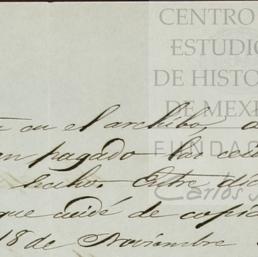 CENTRO
ESTUDIO
DE HISTOR
DE MEXI
FUNDAC
Carlos
en el archibo, a
pagado las
hecho. Entre
que cuidé de copia
18 de Noviembre